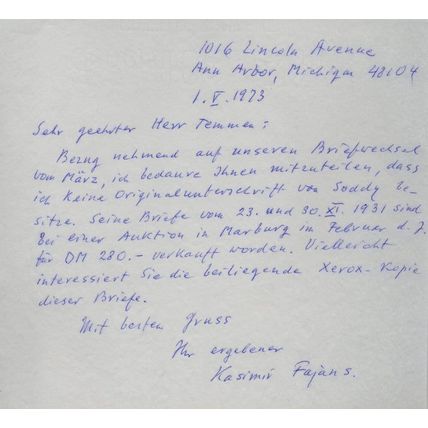 1016 Lincoln Avenue
Ann Arbor, Michigan 48104
1.V.1973
Sehr geehrter Herr Temmen:
Bezug nehmend auf unseren Briefwechsel
vom März, ich bedaure Ihnen mitzuteilen, dass
ich keine Originalunterschrift von Soddy be-
sitze. Seine Briefe vom 23. und 30. XI. 1931 sind
bei einer Auktion in Marburg im Februar d. J.
für DM 280.- verkauft worden. Vielleicht
interessiert Sie die beiliegende Xerox-Kopie
dieser Briefe.
Mit besten Gruss
Ihr ergebener
Kasimir Fajans.